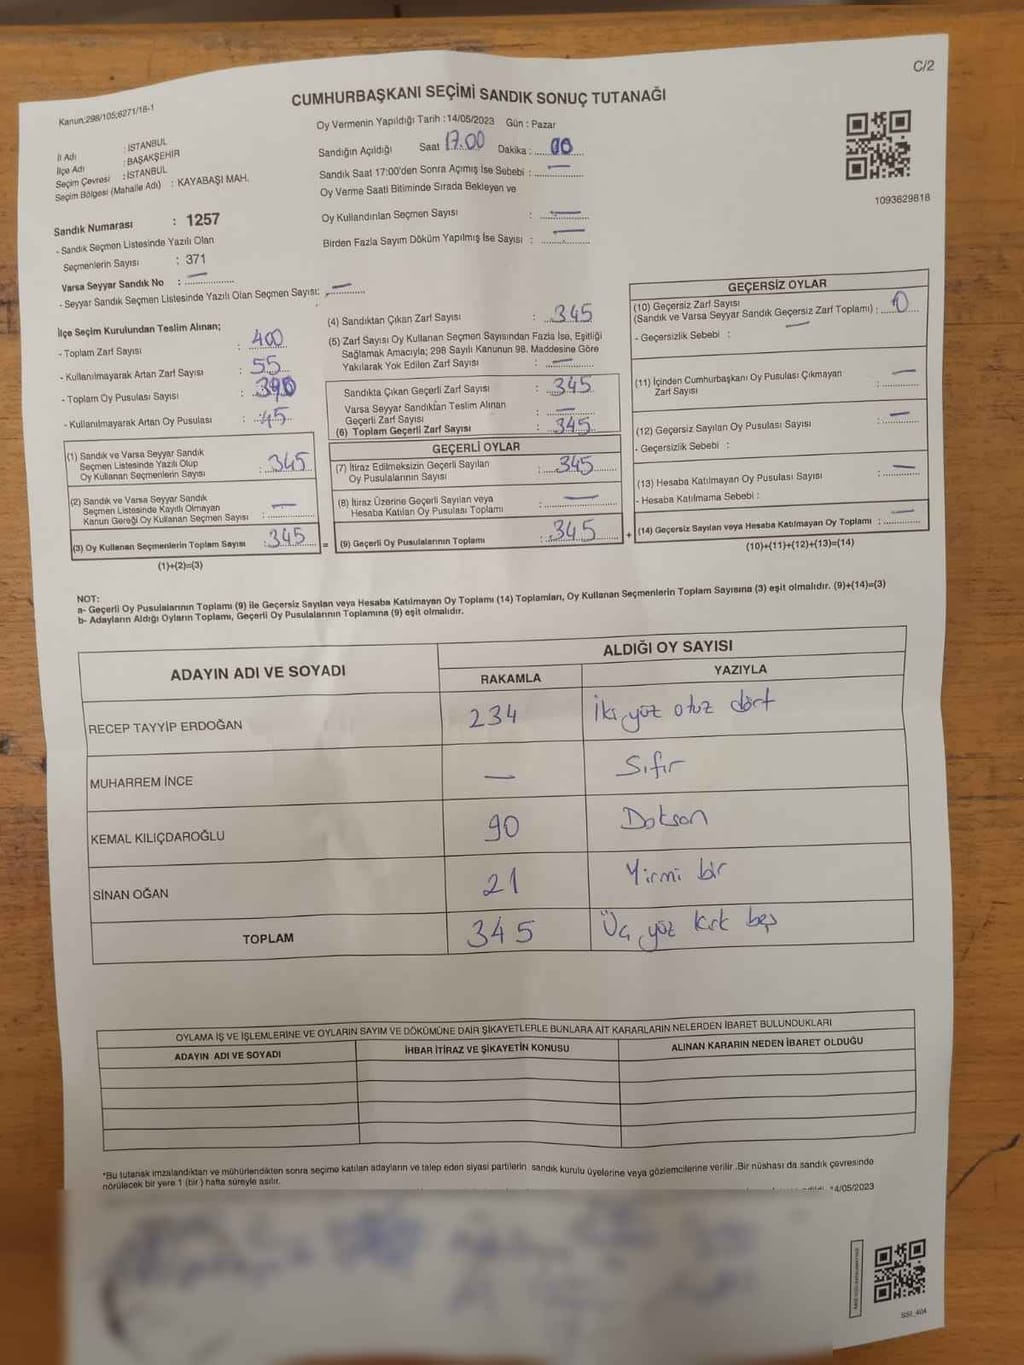 C/2
Kanun;298/105;6271/18-1
CUMHURBAŞKANI SEÇİMİ SANDIK SONUÇ TUTANAĞI
İl Adı : İSTANBUL
İlçe Adı : BAŞAKŞEHİR
Seçim Çevresi : İSTANBUL
Seçim Bölgesi (Mahalle Adı) : KAYABAŞI MAH.
Sandık Numarası : 1257
- Sandık Seçmen Listesinde Yazılı Olan
Seçmenlerin Sayısı : 371
Varsa Seyyar Sandık No : —
- Seyyar Sandık Seçmen Listesinde Yazılı Olan Seçmen Sayısı: —
Oy Vermenin Yapıldığı Tarih : 14/05/2023 Gün : Pazar
Sandığın Açıldığı Saat 17.00 Dakika : 00
Sandık Saat 17:00'den Sonra Açımış İse Sebebi : —
Oy Verme Saati Bitiminde Sırada Bekleyen ve
Oy Kullandırılan Seçmen Sayısı : —
Birden Fazla Sayım Döküm Yapılmış İse Sayısı : —
1093629818
İlçe Seçim Kurulundan Teslim Alınan;
- Toplam Zarf Sayısı : 400
- Kullanılmayarak Artan Zarf Sayısı : 55
- Toplam Oy Pusulası Sayısı : 390
- Kullanılmayarak Artan Oy Pusulası : 45
(1) Sandık ve Varsa Seyyar Sandık
Seçmen Listesinde Yazılı Olup
Oy Kullanan Seçmenlerin Sayısı : 345
(2) Sandık ve Varsa Seyyar Sandık
Seçmen Listesinde Kayıtlı Olmayan
Kanun Gereği Oy Kullanan Seçmen Sayısı : —
(3) Oy Kullanan Seçmenlerin Toplam Sayısı : 345 =
(1)+(2)=(3)
(4) Sandıktan Çıkan Zarf Sayısı : 345
(5) Zarf Sayısı Oy Kullanan Seçmen Sayısından Fazla İse, Eşitliği
Sağlamak Amacıyla; 298 Sayılı Kanunun 98. Maddesine Göre
Yakılarak Yok Edilen Zarf Sayısı : —
Sandıkta Çıkan Geçerli Zarf Sayısı : 345
Varsa Seyyar Sandıktan Teslim Alınan
Geçerli Zarf Sayısı : —
(6) Toplam Geçerli Zarf Sayısı : 345
GEÇERLİ OYLAR
(7) İtiraz Edilmeksizin Geçerli Sayılan
Oy Pusulalarının Sayısı : 345
(8) İtiraz Üzerine Geçerli Sayılan veya
Hesaba Katılan Oy Pusulası Toplamı : —
(9) Geçerli Oy Pusulalarının Toplamı : 345 +
GEÇERSİZ OYLAR
(10) Geçersiz Zarf Sayısı
(Sandık ve Varsa Seyyar Sandık Geçersiz Zarf Toplamı) : 0
- Geçersizlik Sebebi : —
(11) İçinden Cumhurbaşkanı Oy Pusulası Çıkmayan
Zarf Sayısı : —
(12) Geçersiz Sayılan Oy Pusulası Sayısı : —
- Geçersizlik Sebebi :
(13) Hesaba Katılmayan Oy Pusulası Sayısı : —
- Hesaba Katılmama Sebebi :
(14) Geçersiz Sayılan veya Hesaba Katılmayan Oy Toplamı : —
(10)+(11)+(12)+(13)=(14)
NOT:
a- Geçerli Oy Pusulalarının Toplamı (9) ile Geçersiz Sayılan veya Hesaba Katılmayan Oy Toplamı (14) Toplamları, Oy Kullanan Seçmenlerin Toplam Sayısına (3) eşit olmalıdır. (9)+(14)=(3)
b- Adayların Aldığı Oyların Toplamı, Geçerli Oy Pusulalarının Toplamına (9) eşit olmalıdır.
ADAYIN ADI VE SOYADI
ALDIĞI OY SAYISI
RAKAMLA YAZIYLA
RECEP TAYYİP ERDOĞAN 234 İki yüz otuz dört
MUHARREM İNCE — Sıfır
KEMAL KILIÇDAROĞLU 90 Doksan
SİNAN OĞAN 21 Yirmi bir
TOPLAM 345 Üç yüz kırk beş
OYLAMA İŞ VE İŞLEMLERİNE VE OYLARIN SAYIM VE DÖKÜMÜNE DAİR ŞİKAYETLERLE BUNLARA AİT KARARLARIN NELERDEN İBARET BULUNDUKLARI
ADAYIN ADI VE SOYADI İHBAR İTİRAZ VE ŞİKAYETİN KONUSU ALINAN KARARIN NEDEN İBARET OLDUĞU
*Bu tutanak imzalandıktan ve mühürlendikten sonra seçime katılan adayların ve talep eden siyasi partilerin sandık kurulu üyelerine veya gözlemcilerine verilir .Bir nüshası da sandık çevresinde
görülecek bir yere 1 (bir ) hafta süreyle asılır.
4/05/2023